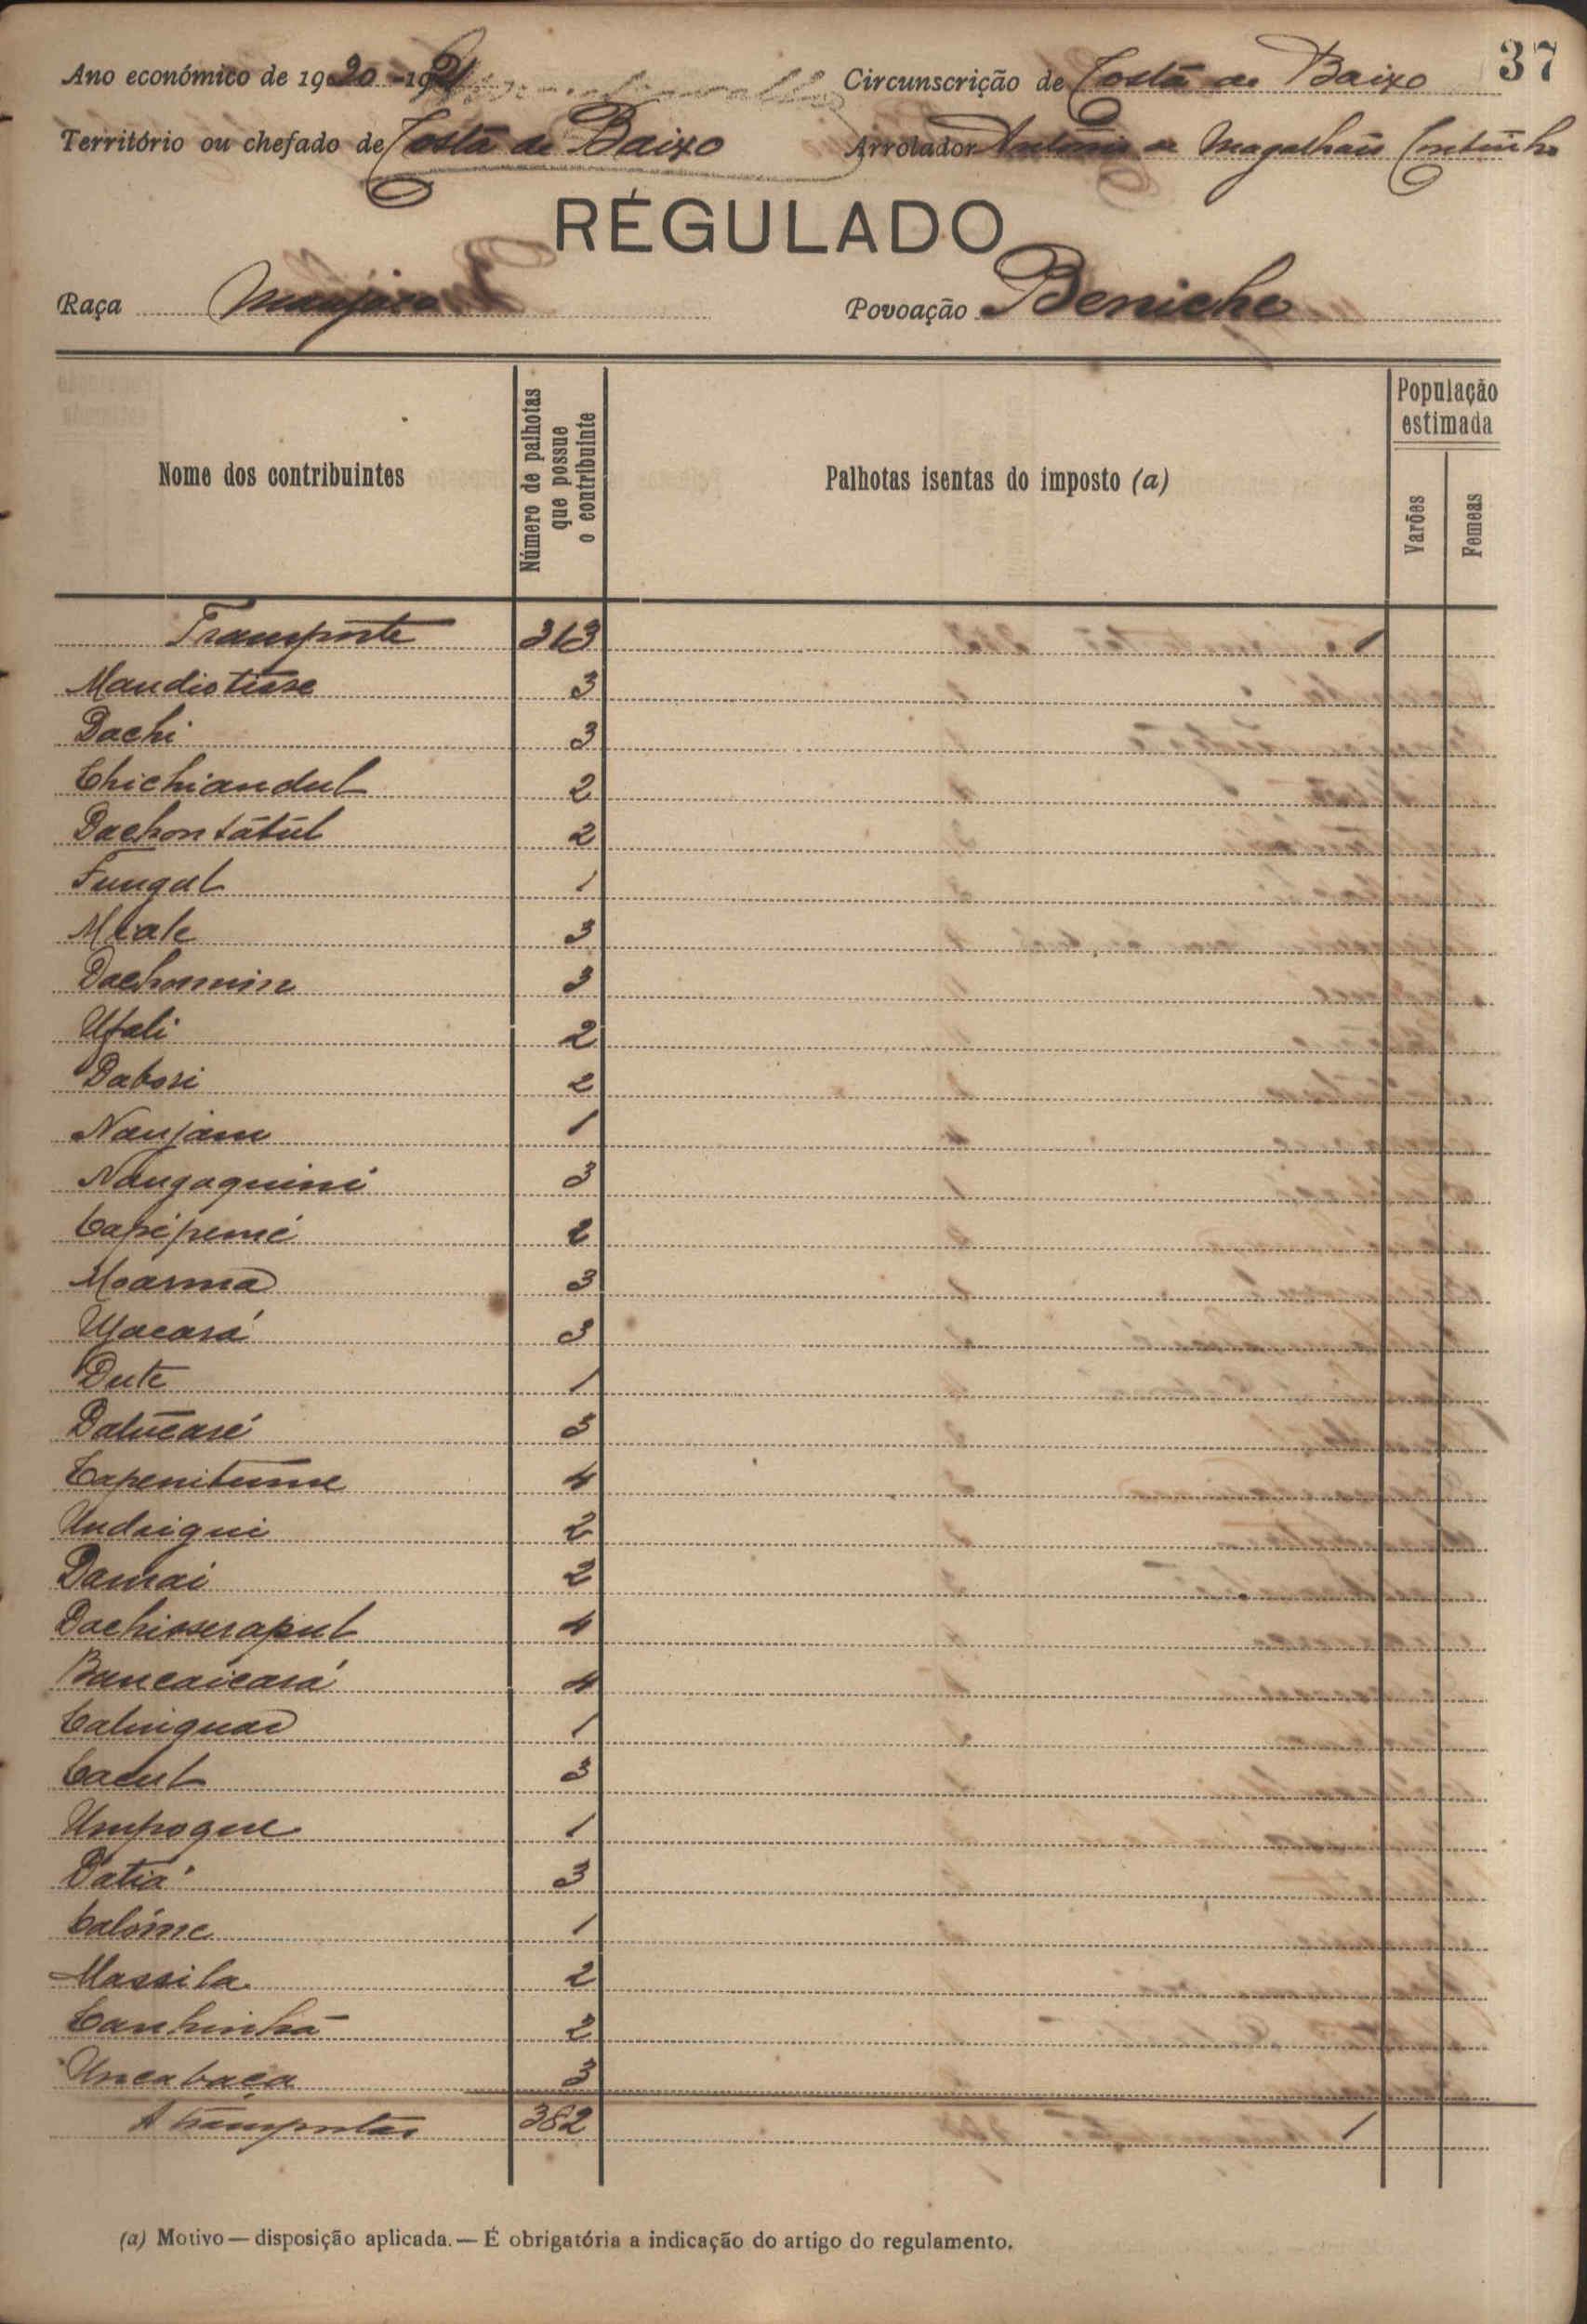 37
Ano económico de 1920-1921 Circunscrição de Costa de Baixo
Território ou chefado de Costa de Baixo Arrolador António de Magalhães Coutinho
RÉGULADO
Raça Manjaca Povoação Beniche
Nome dos contribuintes
Número de palhotas que possue o contribuinte
Palhotas isentas do imposto (a)
População estimada
Varões
Femeas
Transporte 313 1
Mandistusse 3
Dachi 3
Chichiandul 2
Dachontátul 2
Fungal 1
Mlale 3
Dachomim 3
Ufali 2
Dabosi 2
Naujam 1
Nangaquini 3
Capépemé 2
Moarma 3
Ujacará 3
Dute 1
Datucasé 3
Capenitume 4
Undaigui 2
Damai 2
Dachisserapul 4
Bancaicará 4
Calinguar 1
Cacul 3
Umpogue 1
Datiá 3
Calóme 1
Massila 2
Canhinhã 2
Uncabaca 3
A transportar 382 1
(a) Motivo — disposição aplicada. — É obrigatória a indicação do artigo do regulamento.